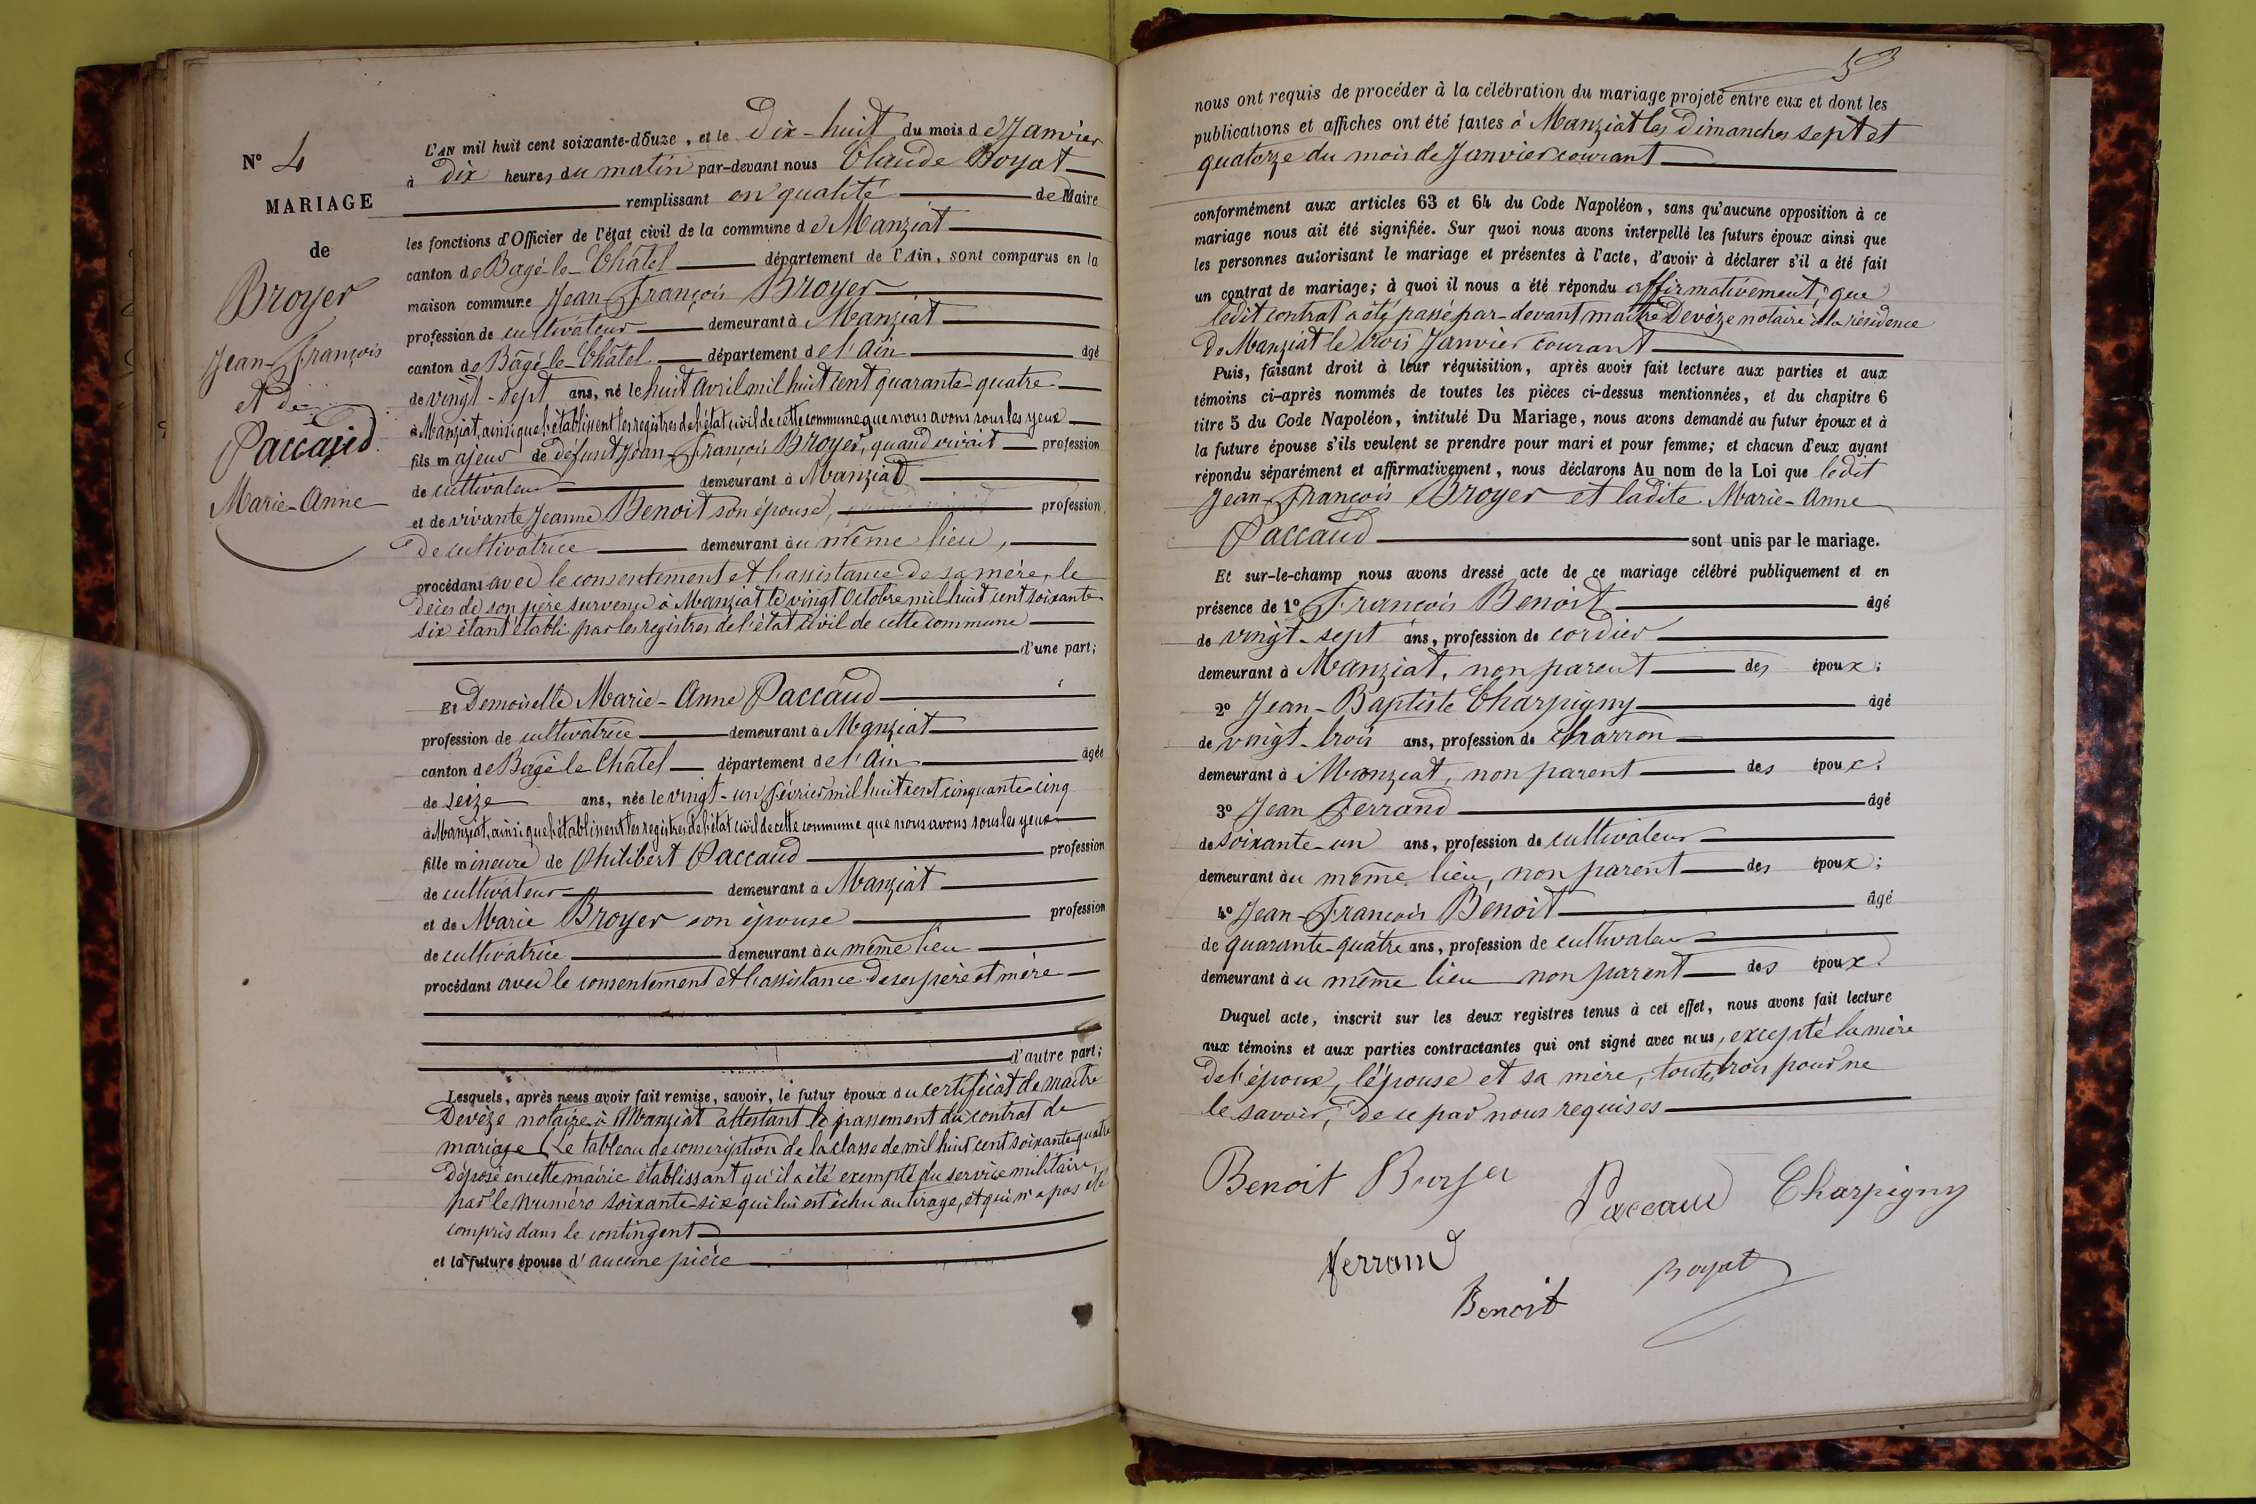 N° 4
MARIAGE
de
Broyer
Jean-François
et de
Paccaud
Marie-Anne
L'AN mil huit cent soixante-douze, et le dix-huit du mois de Janvier
à dix heures du matin par-devant nous Claude Boyat
remplissant en qualité de Maire
les fonctions d'Officier de l'état civil de la commune de Manziat
canton de Bagé-le-Châtel département de l'Ain, sont comparus en la
maison commune Jean-François Broyer
profession de cultivateur demeurant à Manziat
canton de Bâgé-le-Châtel département de l'Ain âgé
de vingt-sept ans, né le huit avril mil huit cent quarante-quatre
à Manziat, ainsi que l'établissent les registres de l'état civil de cette commune que nous avons sous les yeux
fils majeur de défunt Jean-François Broyer, quand vivait profession
de cultivateur demeurant à Manziat
et de vivante Jeanne Benoit son épouse, profession
de cultivatrice demeurant au même lieu,
procédant avec le consentement et l'assistance de sa mère, le
décès de son père survenu à Manziat le vingt Octobre mil huit cent soixante-
six étant établi par les registres de l'état civil de cette commune
d'une part;
Et Demoiselle Marie-Anne Paccaud
profession de cultivatrice demeurant à Manziat
canton de Bâgé le Châtel département de l'Ain âgée
de seize ans, née le vingt-un février mil huit cent cinquante-cinq
à Manziat, ainsi que l'établissent les registres de l'état civil de cette commune que nous avons sous les yeux
fille mineure de Philibert Paccaud profession
de cultivateur demeurant à Manziat
et de Marie Broyer son épouse profession
de cultivatrice demeurant au même lieu
procédant avec le consentement et l'assistance de ses père et mère
d'autre part;
Lesquels, après nous avoir fait remise, savoir, le futur époux du certificat de maître
Devèze notaire à Manziat attestant le passement du contrat de
mariage Le tableau de conscription de la classe de mil huit cent soixante-quatre
déposé en cette mairie établissant qu'il a été exempté du service militaire
par le numéro soixante-six qui lui est échu au tirage, et qui n'a pas été
compris dans le contingent
et la future épouse d'aucune pièce
53
nous ont requis de procéder à la célébration du mariage projeté entre eux et dont les
publications et affiches ont été faites à Manziat les dimanches sept et
quatorze du mois de Janvier courant
conformément aux articles 63 et 64 du Code Napoléon, sans qu'aucune opposition à ce
mariage nous ait été signifiée. Sur quoi nous avons interpellé les futurs époux ainsi que
les personnes autorisant le mariage et présentes à l'acte, d'avoir à déclarer s'il a été fait
un contrat de mariage; à quoi il nous a été répondu affirmativement, que
ledit contrat a été passé par-devant maître Devèze notaire à la résidence
de Manziat le trois Janvier courant
Puis, faisant droit à leur réquisition, après avoir fait lecture aux parties et aux
témoins ci-après nommés de toutes les pièces ci-dessus mentionnées, et du chapitre 6
titre 5 du Code Napoléon, intitulé Du Mariage, nous avons demandé au futur époux et à
la future épouse s'ils veulent se prendre pour mari et pour femme; et chacun d'eux ayant
répondu séparément et affirmativement, nous déclarons Au nom de la Loi que ledit
Jean-François Broyer et ladite Marie-Anne
Paccaud sont unis par le mariage.
Et sur-le-champ nous avons dressé acte de ce mariage célébré publiquement et en
présence de 1° François Benoit âgé
de vingt-sept ans, profession de cordier
demeurant à Manziat, non parent des époux;
2° Jean-Baptiste Charpigny âgé
de vingt-trois ans, profession de charron
demeurant à Manziat, non parent des époux;
3° Jean Ferrand âgé
de soixante-un ans, profession de cultivateur
demeurant au même lieu, non parent des époux;
4° Jean-François Benoit âgé
de quarante-quatre ans, profession de cultivateur
demeurant au même lieu non parent des époux
Duquel acte, inscrit sur les deux registres tenus à cet effet, nous avons fait lecture
aux témoins et aux parties contractantes qui ont signé avec nous, excepté la mère
de l'époux, l'épouse et sa mère, toutes trois pour ne
le savoir, de ce par nous requises
Benoit Broyer
Paccaud Charpigny
ferrand
Benoit
Boyat